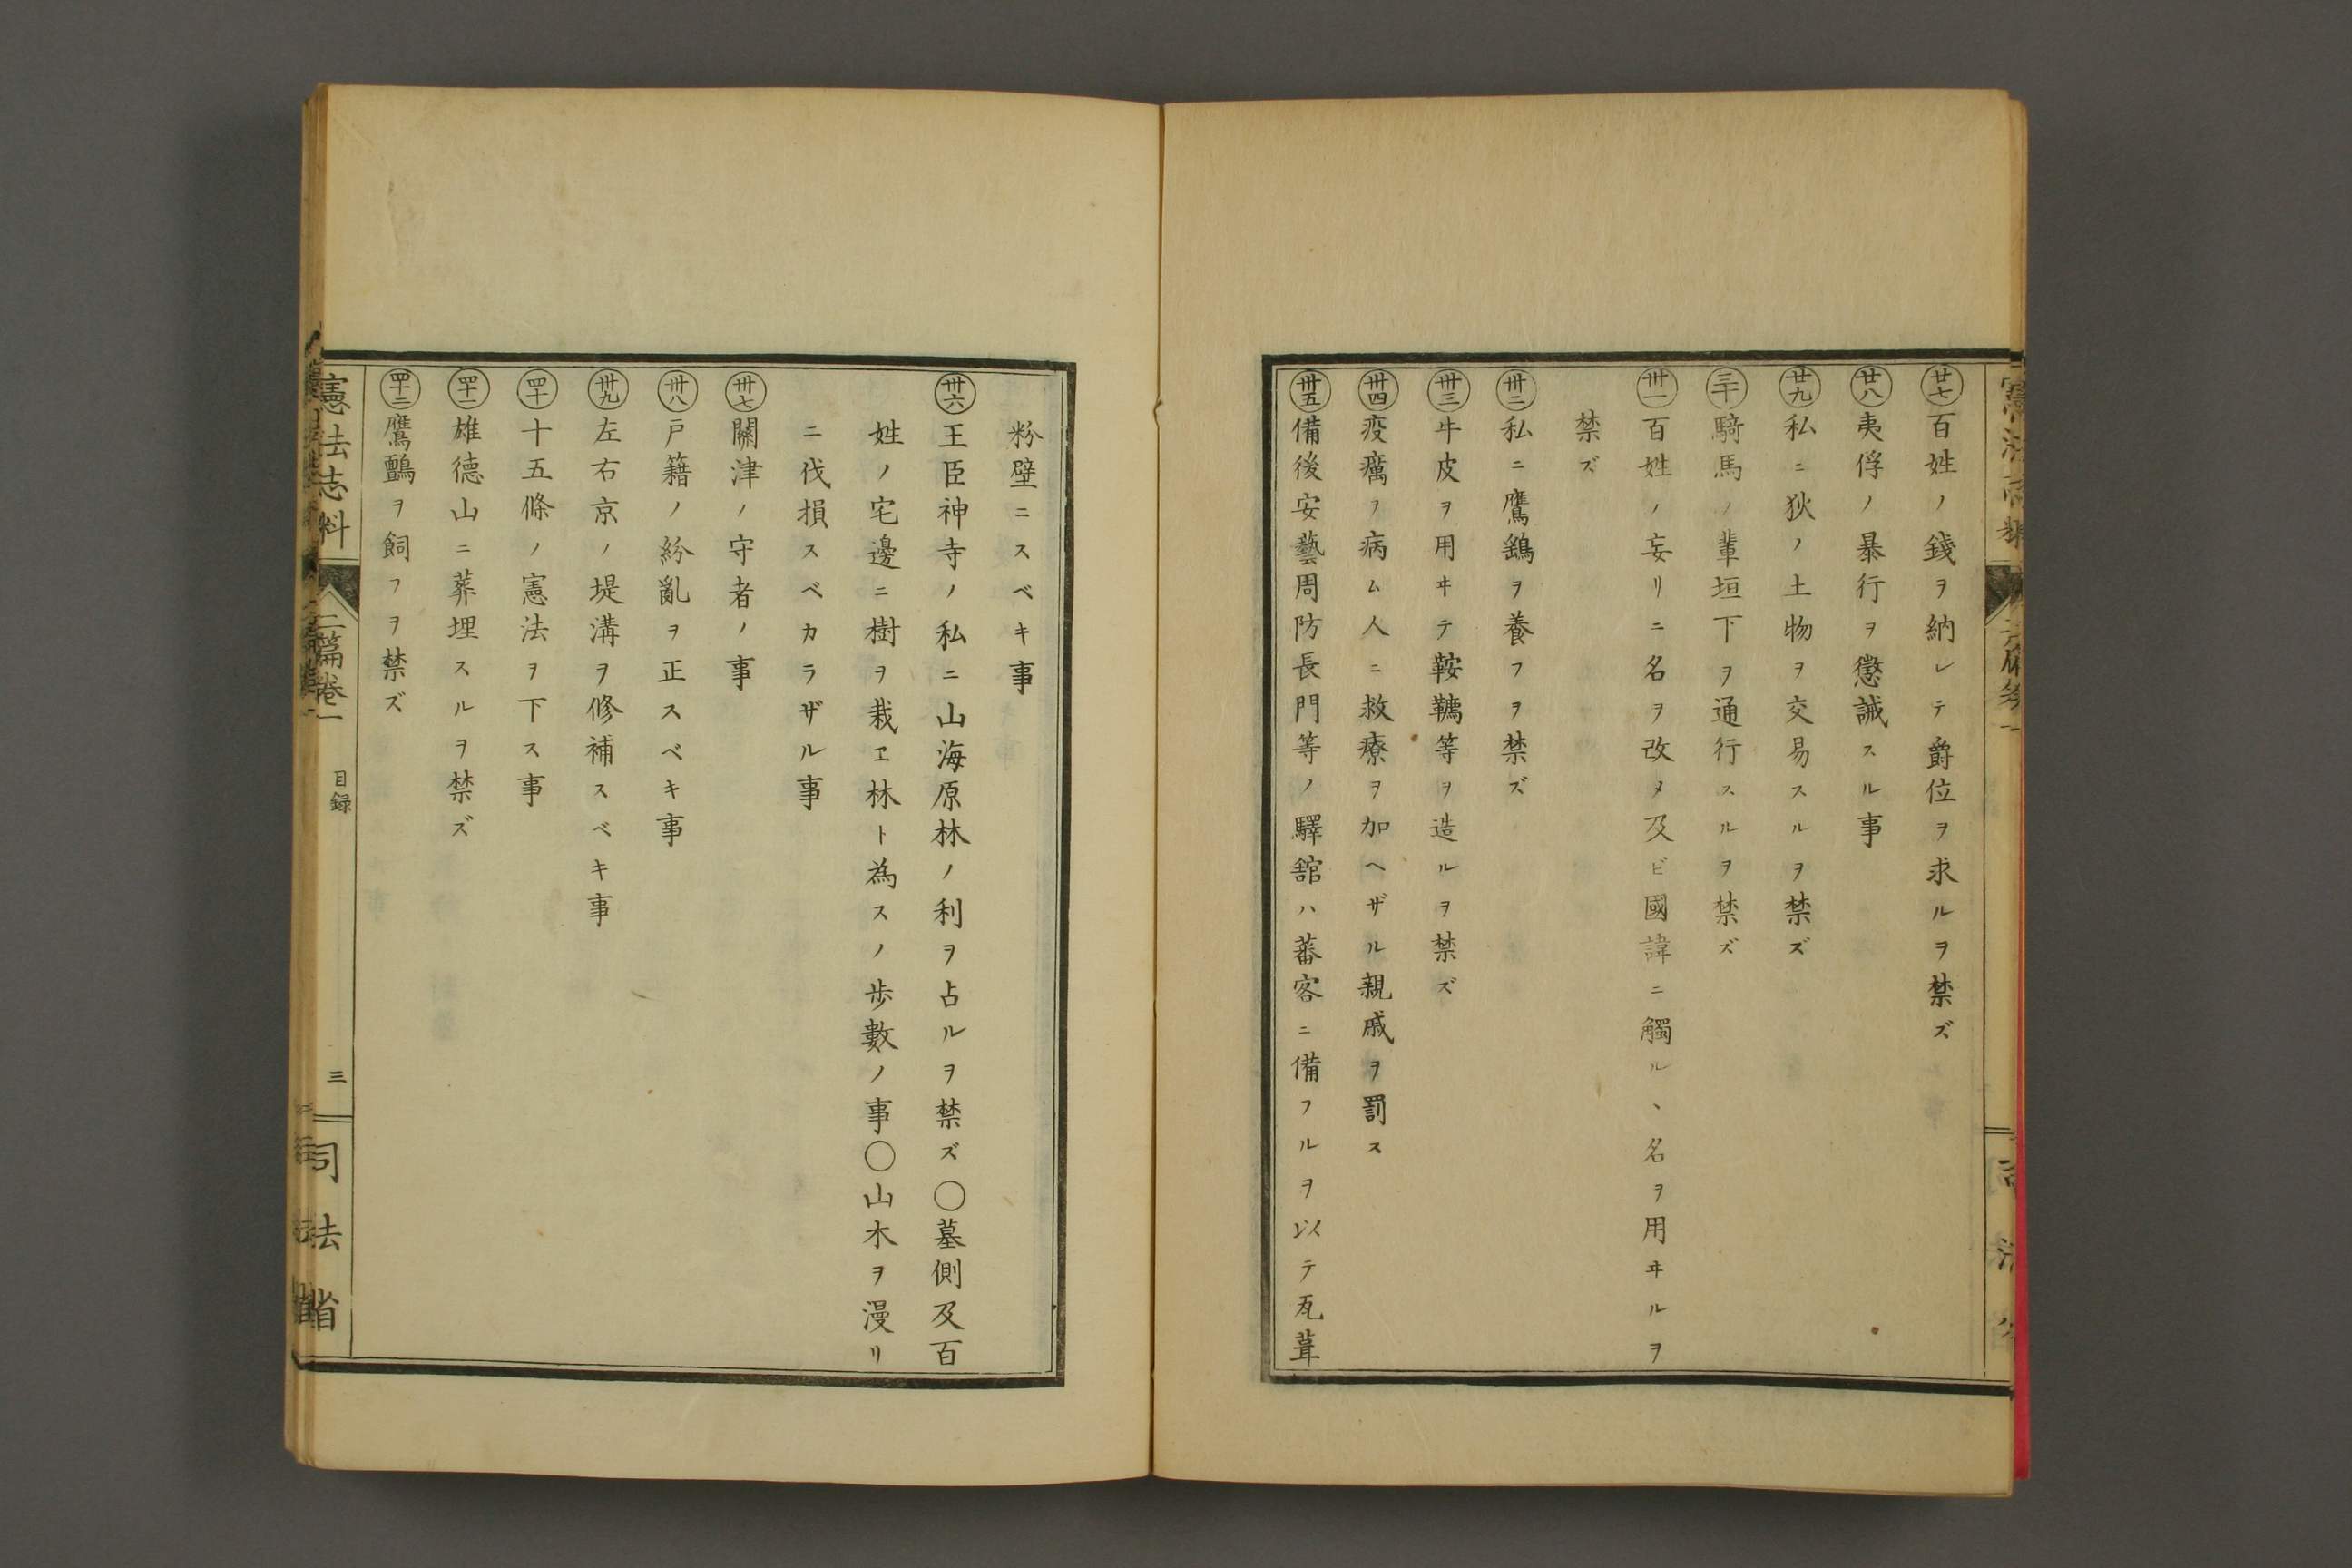 廿七百姓ノ錢ヲ納レテ爵位ヲ求ルヲ禁ズ
廿八夷俘ノ暴行ヲ懲誡スル事
廿九私ニ狄ノ土物ヲ交易スルヲ禁ズ
三十騎馬ノ輩垣下ヲ通行スルヲ禁ズ
卅一百姓ノ妄リニ名ヲ改メ及ビ國諱ニ觸ルヽ名ヲ用ヰルヲ
禁ズ
卅二私ニ鷹鷂ヲ養フヲ禁ズ
卅三牛皮ヲ用ヰテ鞍韉等ヲ造ルヲ禁ズ
卅四疫癘ヲ病ム人ニ救療ヲ加ヘザル親戚ヲ罰ス
卅五備後安藝周防長門等ノ驛舘ハ蕃客ニ備フルヲ以テ瓦葺
粉壁ニスベキ事
卅六王臣神寺ノ私ニ山海原林ノ利ヲ占ルヲ禁ズ〇墓側及百
姓ノ宅邊ニ樹ヲ栽ヱ林ト為スノ歩數ノ事〇山木ヲ漫リ
ニ伐損スベカラザル事
卅七關津ノ守者ノ事
卅八戸籍ノ紛亂ヲ正スベキ事
卅九左右京ノ堤溝ヲ修補スベキ事
四十十五條ノ憲法ヲ下ス事
四十一雄德山ニ葬埋スルヲ禁ズ
四十二鷹鸇ヲ飼フヲ禁ズ
憲法志料 二篇卷一 目録 三 司法省